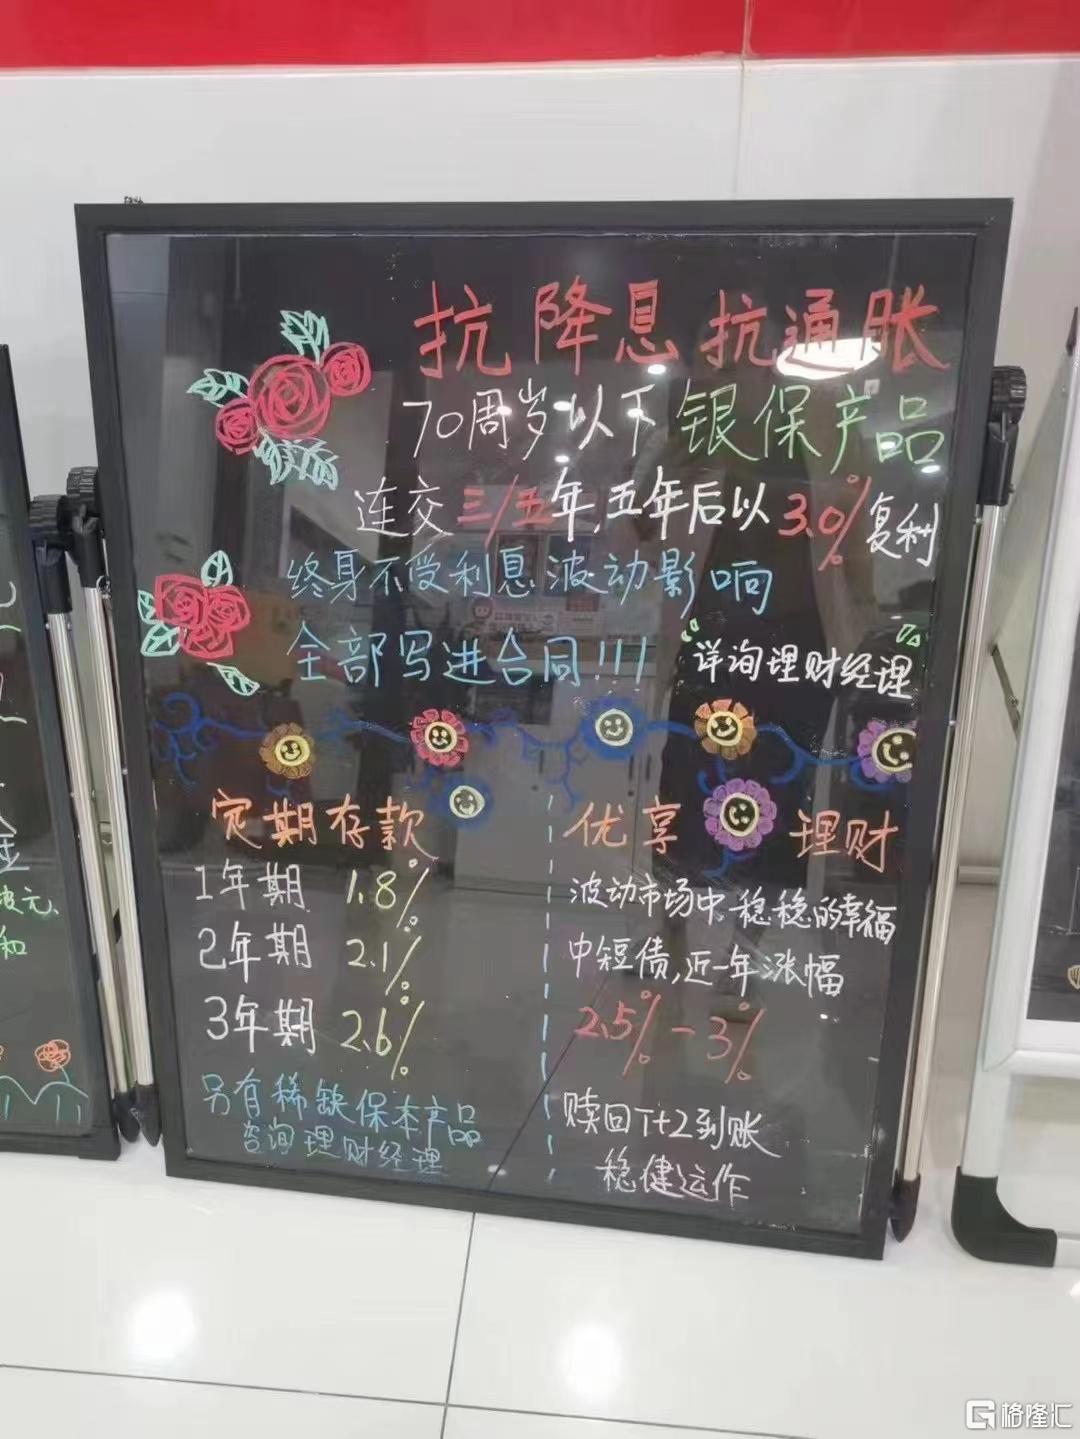 抗降息抗通胀
70周岁以下银保产品
连交三/五年,五年后以3.0%复利
终身不受利息波动影响
全部写进合同!!!
"详询理财经理"
定期存款
1年期 1.8%
2年期 2.1%
3年期 2.6%
另有稀缺保本产品
咨询理财经理
优享 理财
波动市场中,稳稳的幸福
中短债,近一年涨幅
2.5%-3%
赎回T+2到账
稳健运作
金
和
格隆汇